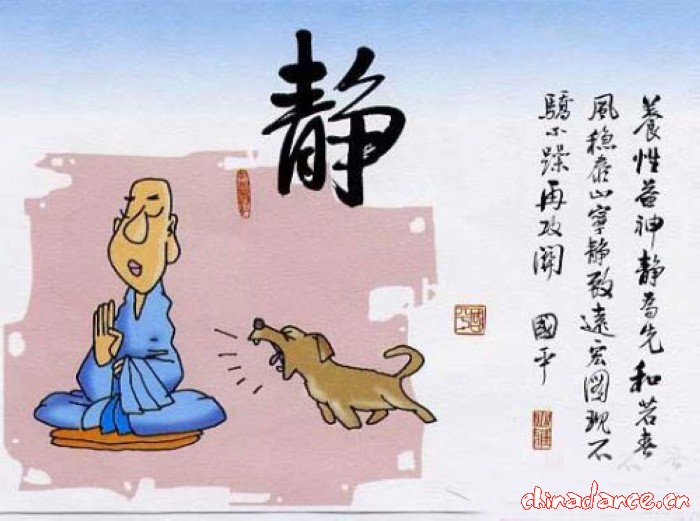 静
養性益神静為先和若春
風穏泰山寧静致遠宏图現不
驕不躁再攻關 國平
chinadance.cn